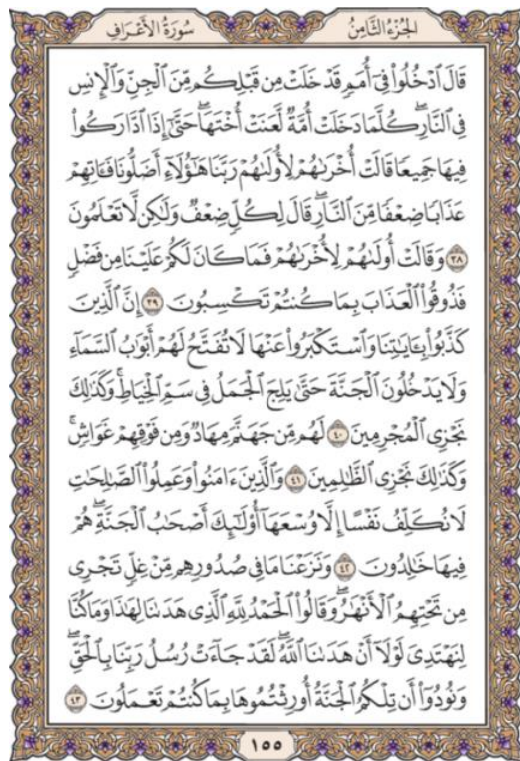 سُورَةُ الأَعْرَافِ الجُزْءُ الثَّامِنُ
قَالَ ٱدْخُلُوا۟ فِىٓ أُمَمٍ قَدْ خَلَتْ مِن قَبْلِكُم مِّنَ ٱلْجِنِّ وَٱلْإِنسِ
فِى ٱلنَّارِ ۖ كُلَّمَا دَخَلَتْ أُمَّةٌ لَّعَنَتْ أُخْتَهَا ۖ حَتَّىٰٓ إِذَا ٱدَّارَكُوا۟
فِيهَا جَمِيعًا قَالَتْ أُخْرَىٰهُمْ لِأُولَىٰهُمْ رَبَّنَا هَـٰٓؤُلَآءِ أَضَلُّونَا فَـَٔاتِهِمْ
عَذَابًا ضِعْفًا مِّنَ ٱلنَّارِ ۖ قَالَ لِكُلٍّ ضِعْفٌ وَلَـٰكِن لَّا تَعْلَمُونَ
٣٨ وَقَالَتْ أُولَىٰهُمْ لِأُخْرَىٰهُمْ فَمَا كَانَ لَكُمْ عَلَيْنَا مِن فَضْلٍ
فَذُوقُوا۟ ٱلْعَذَابَ بِمَا كُنتُمْ تَكْسِبُونَ ٣٩ إِنَّ ٱلَّذِينَ
كَذَّبُوا۟ بِـَٔايَـٰتِنَا وَٱسْتَكْبَرُوا۟ عَنْهَا لَا تُفَتَّحُ لَهُمْ أَبْوَٰبُ ٱلسَّمَآءِ
وَلَا يَدْخُلُونَ ٱلْجَنَّةَ حَتَّىٰ يَلِجَ ٱلْجَمَلُ فِى سَمِّ ٱلْخِيَاطِ ۚ وَكَذَٰلِكَ
نَجْزِى ٱلْمُجْرِمِينَ ٤٠ لَهُم مِّن جَهَنَّمَ مِهَادٌ وَمِن فَوْقِهِمْ غَوَاشٍ ۚ
وَكَذَٰلِكَ نَجْزِى ٱلظَّـٰلِمِينَ ٤١ وَٱلَّذِينَ ءَامَنُوا۟ وَعَمِلُوا۟ ٱلصَّـٰلِحَـٰتِ
لَا نُكَلِّفُ نَفْسًا إِلَّا وُسْعَهَآ أُو۟لَـٰٓئِكَ أَصْحَـٰبُ ٱلْجَنَّةِ ۖ هُمْ
فِيهَا خَـٰلِدُونَ ٤٢ وَنَزَعْنَا مَا فِى صُدُورِهِم مِّنْ غِلٍّ تَجْرِى
مِن تَحْتِهِمُ ٱلْأَنْهَـٰرُ ۖ وَقَالُوا۟ ٱلْحَمْدُ لِلَّهِ ٱلَّذِى هَدَىٰنَا لِهَـٰذَا وَمَا كُنَّا
لِنَهْتَدِىَ لَوْلَآ أَنْ هَدَىٰنَا ٱللَّهُ ۖ لَقَدْ جَآءَتْ رُسُلُ رَبِّنَا بِٱلْحَقِّ ۖ
وَنُودُوٓا۟ أَن تِلْكُمُ ٱلْجَنَّةُ أُورِثْتُمُوهَا بِمَا كُنتُمْ تَعْمَلُونَ ٤٣
١٥٥